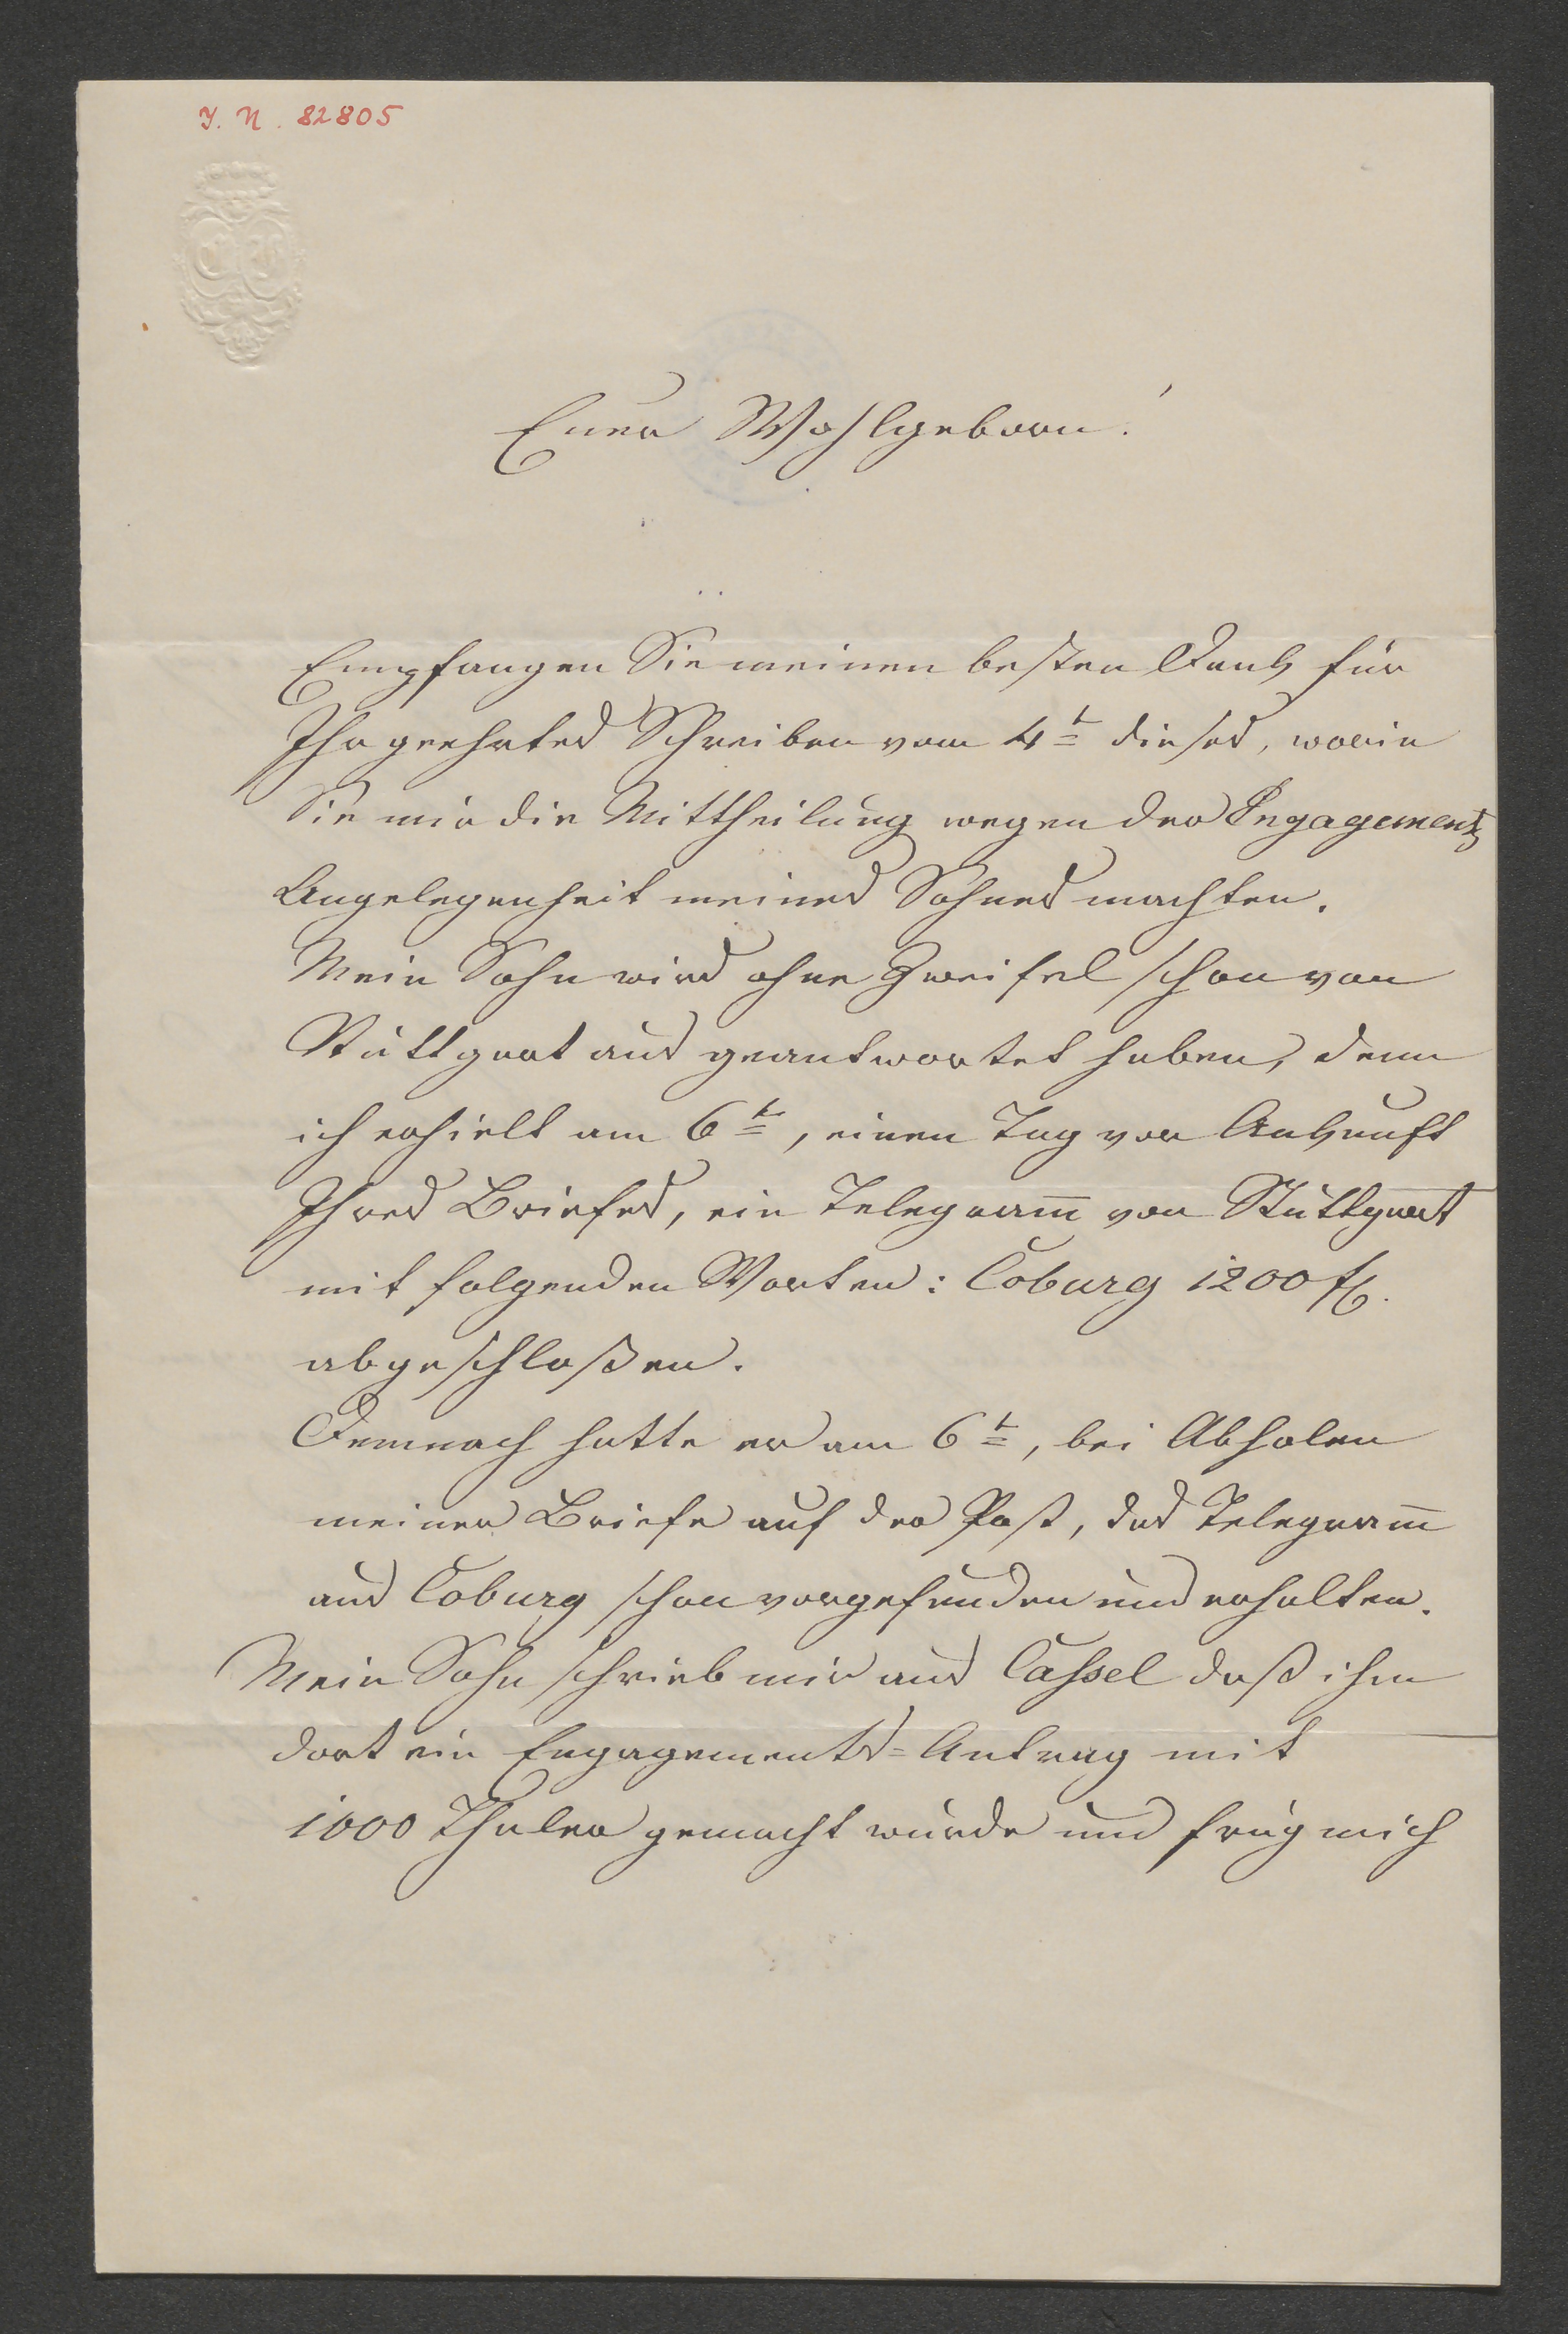 J. N. 82805
Euer Wohlgeborn!
Empfangen Sie meinen besten Dank für
Ihr geehrtes Schreiben vom 4t dieses, worin
Sie mir die Mittheilung wegen der Engagements
Angelegenheit meines Sohnes machten.
Mein Sohn wird ohne Zweifel schon von
Stuttgart aus geantwortet haben, denn
ich erhielt am 6t, einen Tag vor Ankunft
Ihres Briefes, ein Telegram̅ von Stuttgart
mit folgenden Worten: Coburg 1200 fl.
abgeschloßen.
Demnach hatte er am 6t, bei Abholen
meiner Briefe auf der Post, das Telegram̅
aus Coburg schon vorgefunden und erhalten.
Mein Sohn schrieb mir aus Cassel daß ihm
dort ein Engagements-Antrag mit
1000 Thaler gemacht wurde und frug mich